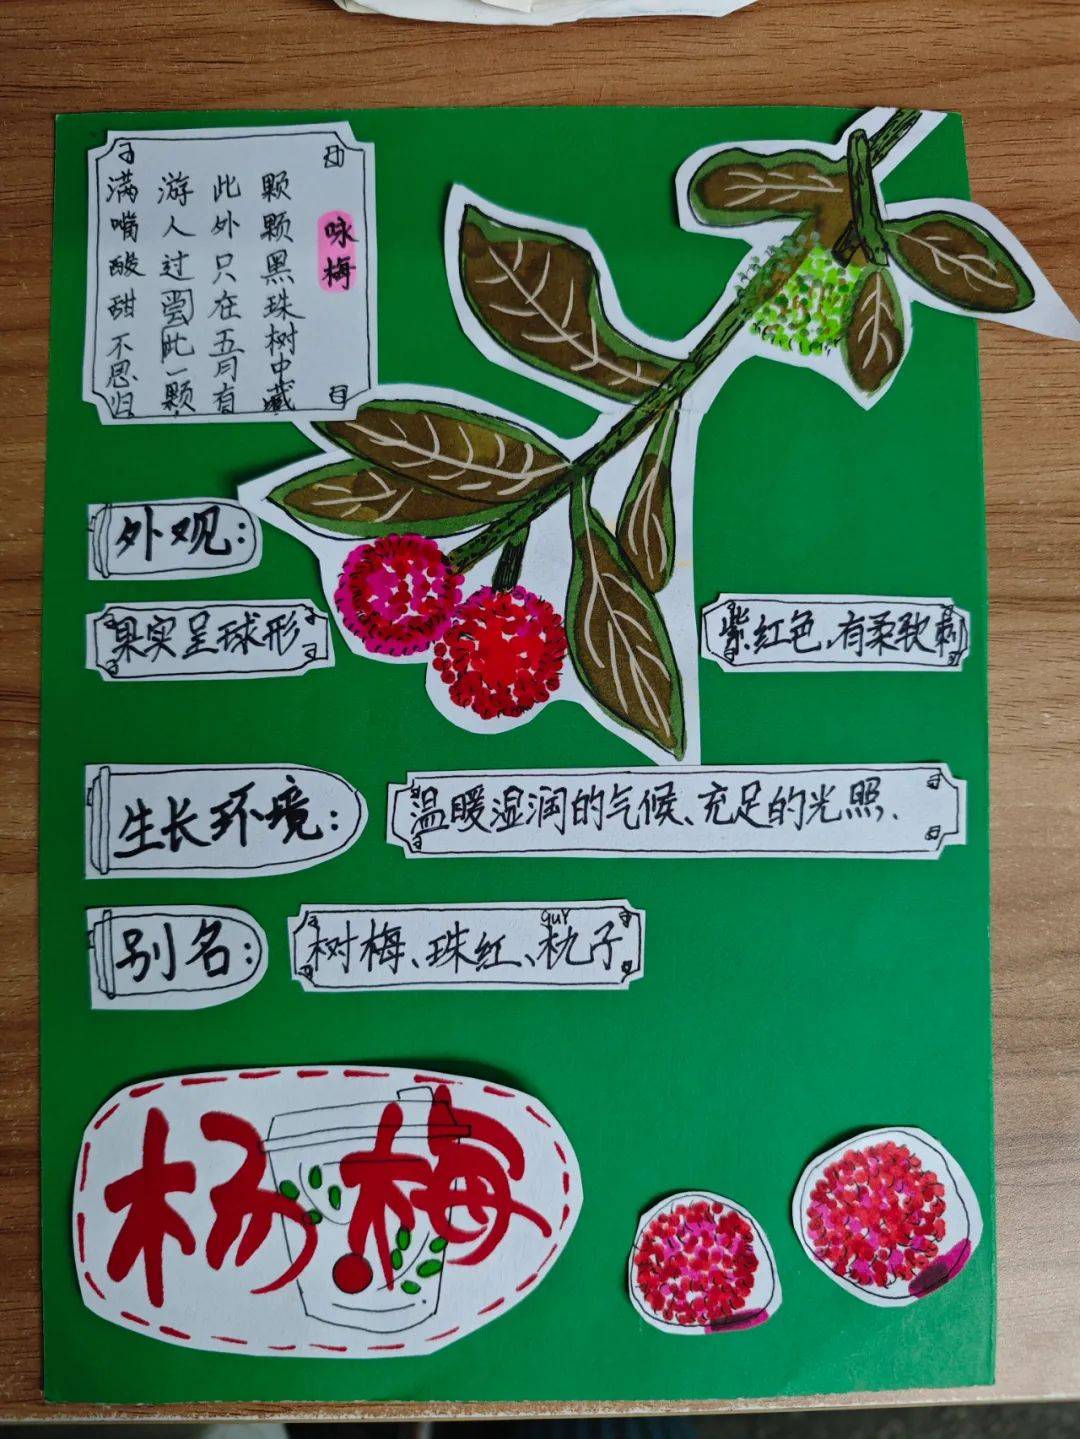 咏梅
颗颗黑珠树中藏
此外只在五月有
游人过尝此一颗
满嘴酸甜不思归
外观:
果实呈球形
紫红色、有柔软刺
生长环境:
温暖湿润的气候、充足的光照、
别名:
guǐ
树梅、珠红、朹子
杨梅